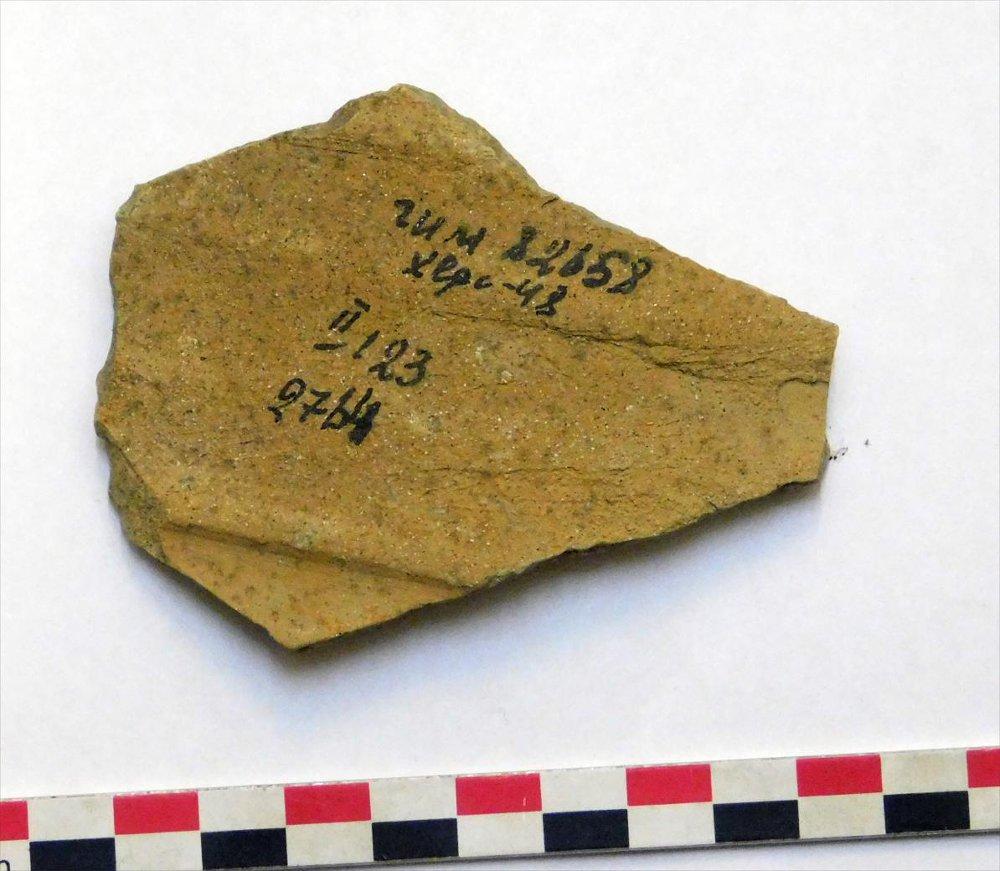 гим 82658
херс-48
II 123